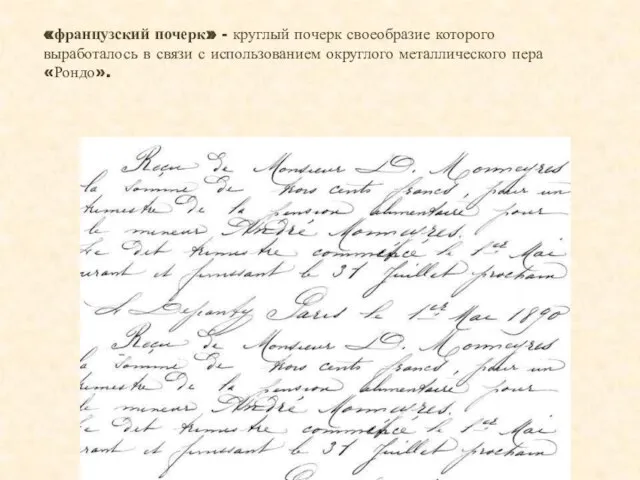 «французский почерк» - круглый почерк своеобразие которого
выработалось в связи с использованием округлого металлического пера
«Рондо».
Reçu de Monsieur D. Monneyres
la somme de trois cents francs, pour un
trimestre de la pension alimentaire pour
le mineur André Monneyres.
Le dit trimestre commence le 1er Mai
urant et finissant le 31 Juillet prochain
Paris le 1er Mai 1890
Reçu de Monsieur D. Monneyres
la somme de trois cents francs, pour un
rimestre de la pension alimentaire pour
le mineur André Monneyres.
e dit trimestre commence le 1er Mai
rant et finissant le 31 Juillet prochain